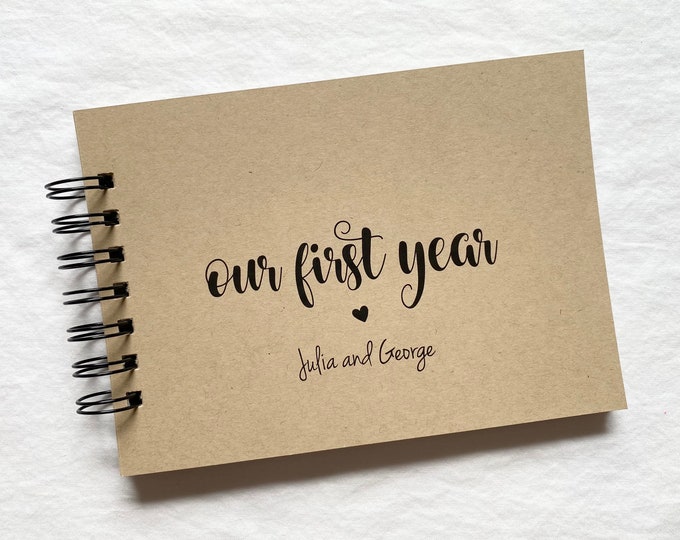 our first year
Julia and George